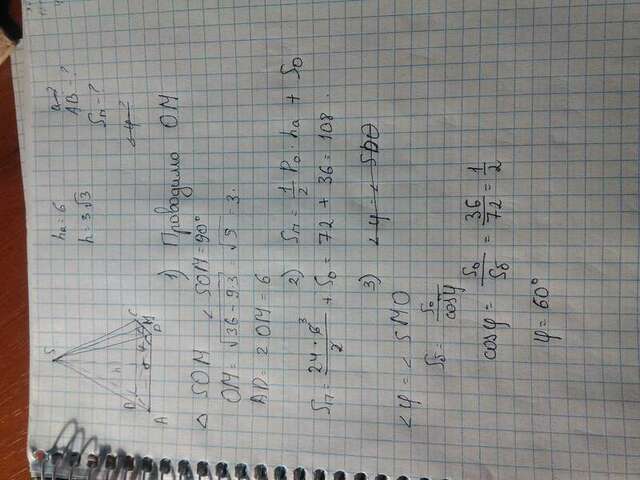 hₐ = 6
h = 3√3
AB - ?
Sп - ?
∠φ - ?
S
A
D
C
M
h
1) Проводимо OM
△ SOM ∠ SOM = 90°
OM = √36 - 9·3 = √9 = 3.
AD = 2 OM = 6
2) Sп = 1/2 Pо · hₐ + Sо
Sп = 24 · 6³ / 2 + Sо = 72 + 36 = 108.
3) ∠φ = ∠ SDO
∠φ = ∠ SMO
Sб = Sо / cosφ
cosφ = Sо / Sб = 36 / 72 = 1/2
φ = 60°